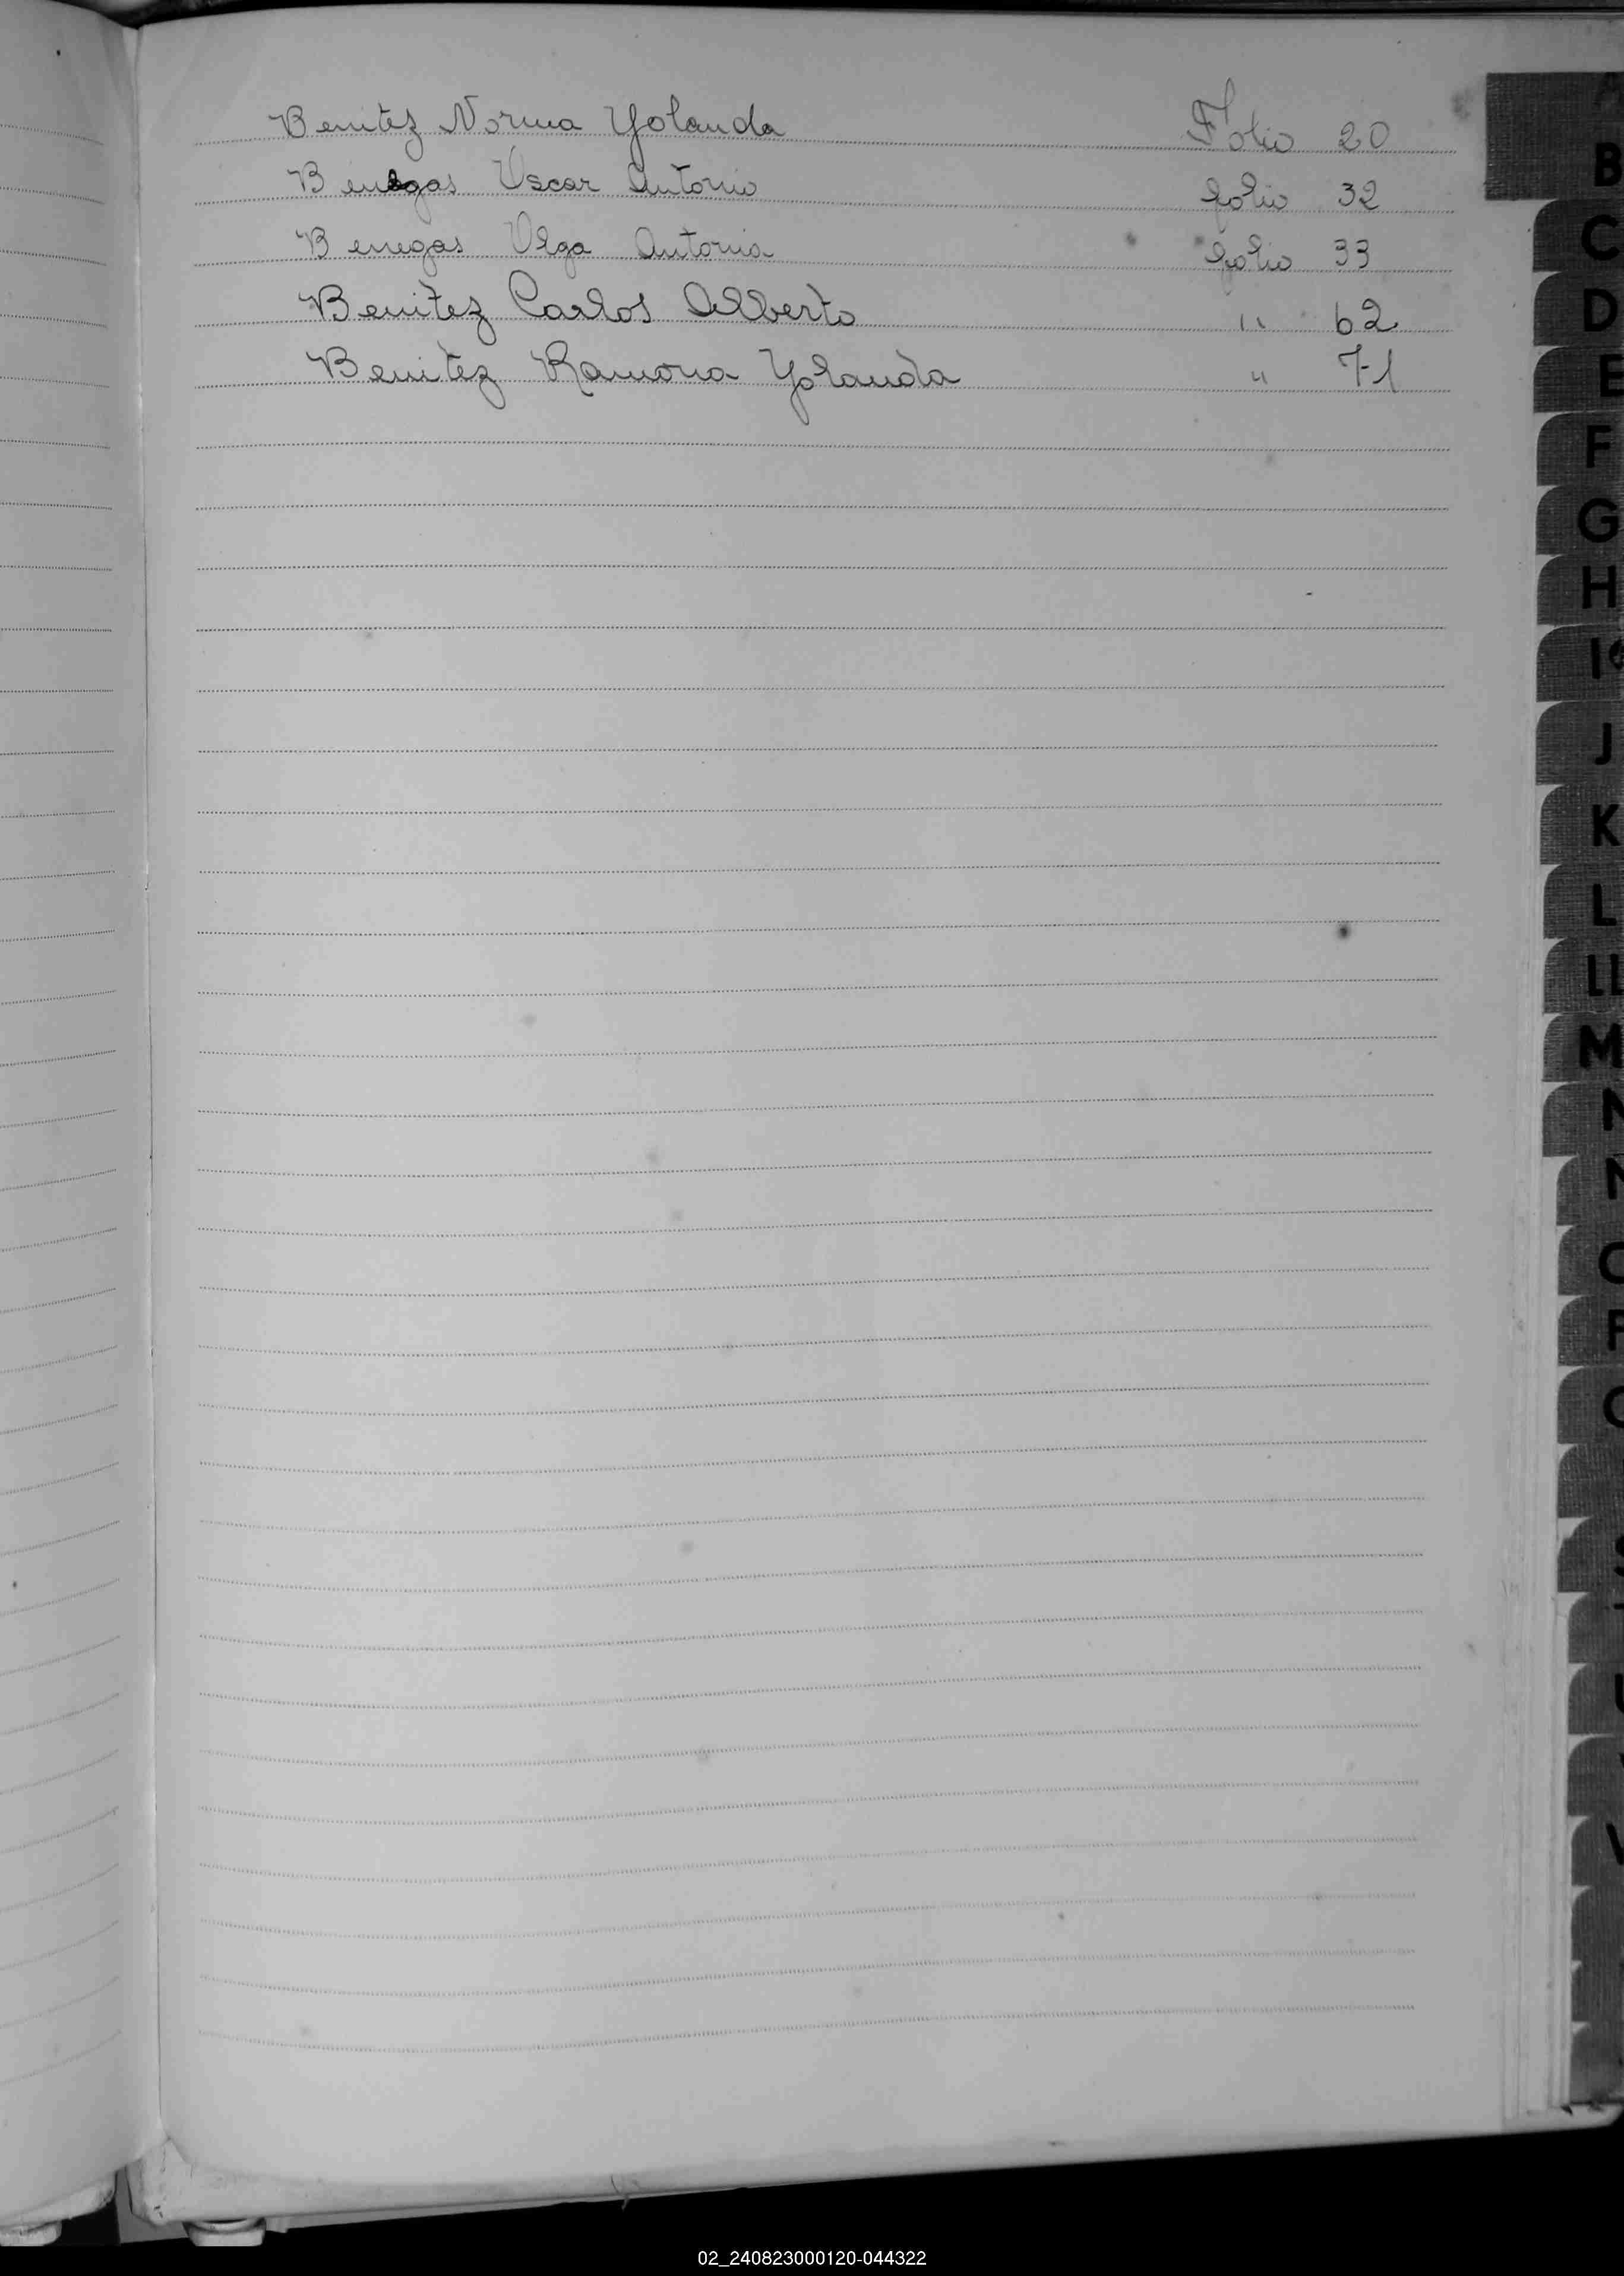 Benitez Norma Yolanda Folio 20
Benegas Oscar Antonio folio 32
Benegas Olga Antonia folio 33
Benitez Carlos Alberto " 62
Benitez Ramona Yolanda " 71
B
C
D
E
F
G
H
I
J
K
L
LL
M
N
02_240823000120-044322